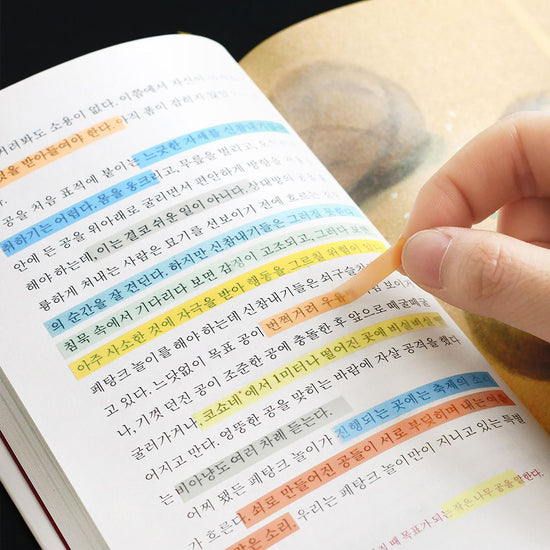 거려봐도 소용이 없다. 이쯤에서 자신이
것을 받아들여야 한다. 아직 몸이 잡히지 않았
공을 처음 표적에 붙이는 느긋한 자세를 신참내기들
위하기는 어렵다. 몸을 웅크리고, 무릎을 벌리고,
안에 든 공을 위아래로 굴리면서 편안하게 방향을
해야 하는데, 이는 결코 쉬운 일이 아니다. 상대방의 공을
륭하게 쳐내는 사람은 묘기를 선보이기 전에 흐르는
의 순간을 잘 견딘다. 하지만 신참내기들은 그러질 못한다.
침묵 속에서 기다리다 보면 감정이 고조되고, 그러다 보면
아주 사소한 것에 자극을 받아 행동을 그르칠 위험이 있다.
페탕크 놀이를 해야 하는데 신참내기들은 쇠구슬
번쩍거려 우유 보이지
고 있다. 느닷없이 목표 공이
나, 기껏 던진 공이 조준한 공에 충돌한 후 앞으로 떼굴떼굴
굴러가거나, '코쇼네'에서 1미터나 떨어진 곳에 비실비실
어지고 만다. 엉뚱한 공을 맞히는 바람에 자살 공격을 했다
는 비아냥도 여러 차례 듣는다.
어찌 됐든 페탕크 놀이가 진행되는 곳에는 축제의 소리
가 흐른다. 쇠로 만들어진 공들이 서로 부딪히며 내는
맑은 소리. 우리는 페탕크 놀이만이 지니고 있는 특별
때 목표가 되는 작은 나무 공을 말한다.